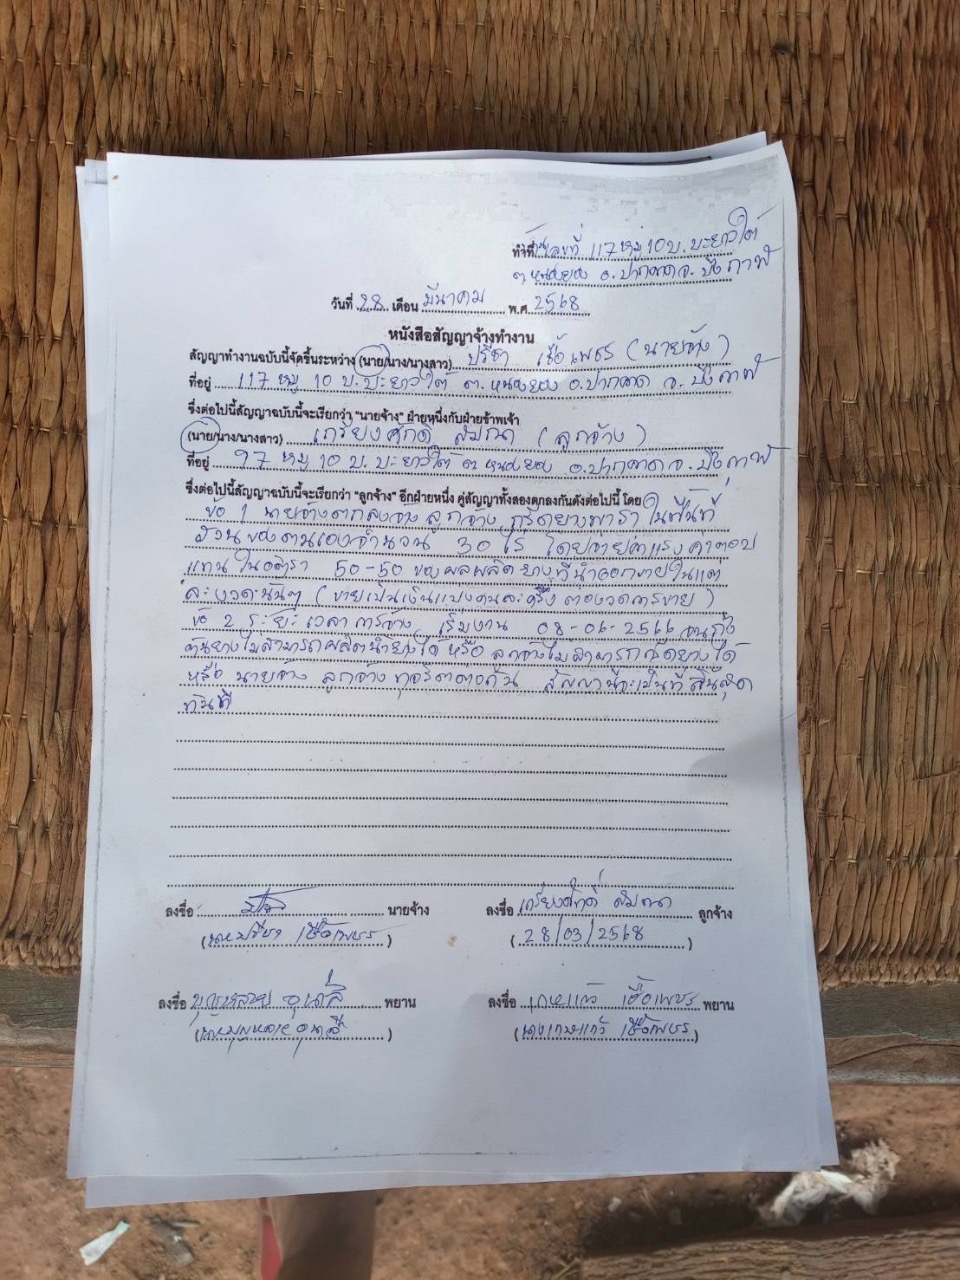 ทำที่ บ้านเลขที่ 117 หมู่ 10 บ. บะยาวใต้
ต. หนองยอง อ. ปากคาด จ. บึงกาฬ
วันที่ 28 เดือน มีนาคม พ.ศ. 2568
หนังสือสัญญาจ้างทำงาน
สัญญาทำงานฉบับนี้จัดขึ้นระหว่าง (นาย/นาง/นางสาว) ปรีชา เชื้อเพชร (นายจ้าง)
ที่อยู่ 117 หมู่ 10 บ. บะยาวใต้ ต. หนองยอง อ. ปากคาด จ. บึงกาฬ
ซึ่งต่อไปนี้สัญญาฉบับนี้จะเรียกว่า "นายจ้าง" ฝ่ายหนึ่งกับฝ่ายข้าพเจ้า
(นาย/นาง/นางสาว) เกรียงศักดิ์ (ลูกจ้าง)
ที่อยู่ 97 หมู่ 10 บ. บะยาวใต้ ต. หนองยอง อ. ปากคาด จ. บึงกาฬ
ซึ่งต่อไปนี้สัญญาฉบับนี้จะเรียกว่า "ลูกจ้าง" อีกฝ่ายหนึ่ง คู่สัญญาทั้งสองตกลงกันดังต่อไปนี้ โดย
ข้อ 1 นายจ้างตกลงจ้าง ลูกจ้าง กรีดยางพารา ในพื้นที่
สวนของตนเองจำนวน 30 ไร่ โดยจ่ายค่าแรง ค่าตอบ
แทน ในอัตรา 50-50 ของผลผลิตยางที่นำออกขายในแต่
ละงวดนั้นๆ (ขายเป็นเงินแบ่งคนละครึ่ง ต่องวดการขาย)
ข้อ 2 ระยะเวลา การจ้าง เริ่มงาน 08-06-2566 จนถึง
ต้นยางไม่สามารถผลิตน้ำยางได้ หรือ ลูกจ้างไม่สามารถกรีดยางได้
หรือ นายจ้าง ลูกจ้าง ทุจริตต่อกัน สัญญานี้จะเป็นที่สิ้นสุด
ทันที
ลงชื่อ นายจ้าง ลงชื่อ เกรียงศักดิ์ ลูกจ้าง
(นายปรีชา เชื้อเพชร) (28/03/2568)
ลงชื่อ บุญหลาย พยาน ลงชื่อ เกษแก้ว เชื้อเพชร พยาน
(นายบุญหลาย) (นางเกษแก้ว เชื้อเพชร)